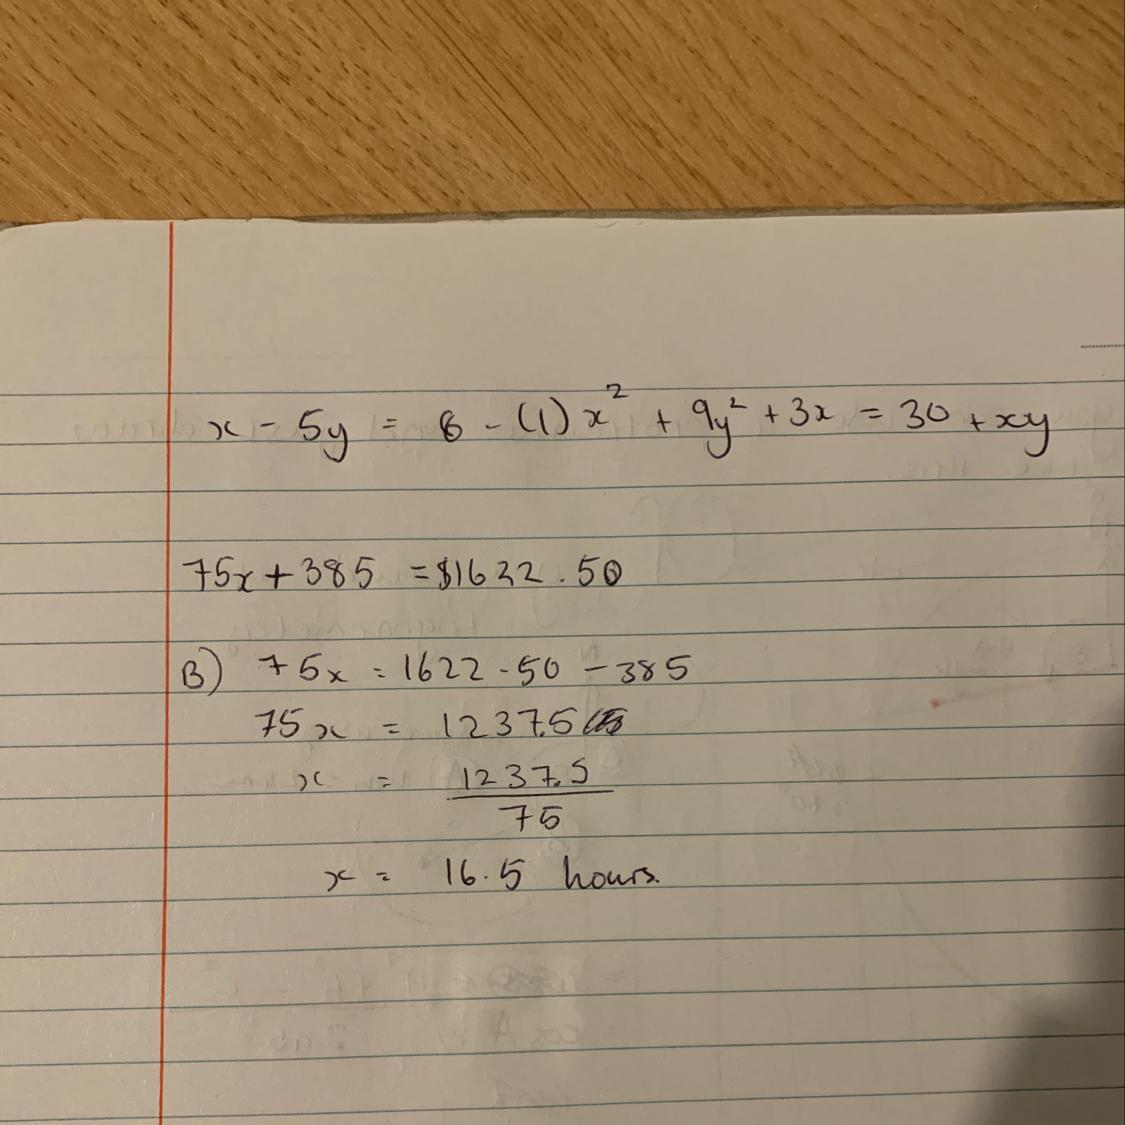 x - 5y = 8 - (1) x² + 9y² + 3x = 30 + xy
75x + 385 = $1622.50
B) 75x = 1622.50 - 385
75x = 1237.5
x = 1237.5
75
x = 16.5 hours.